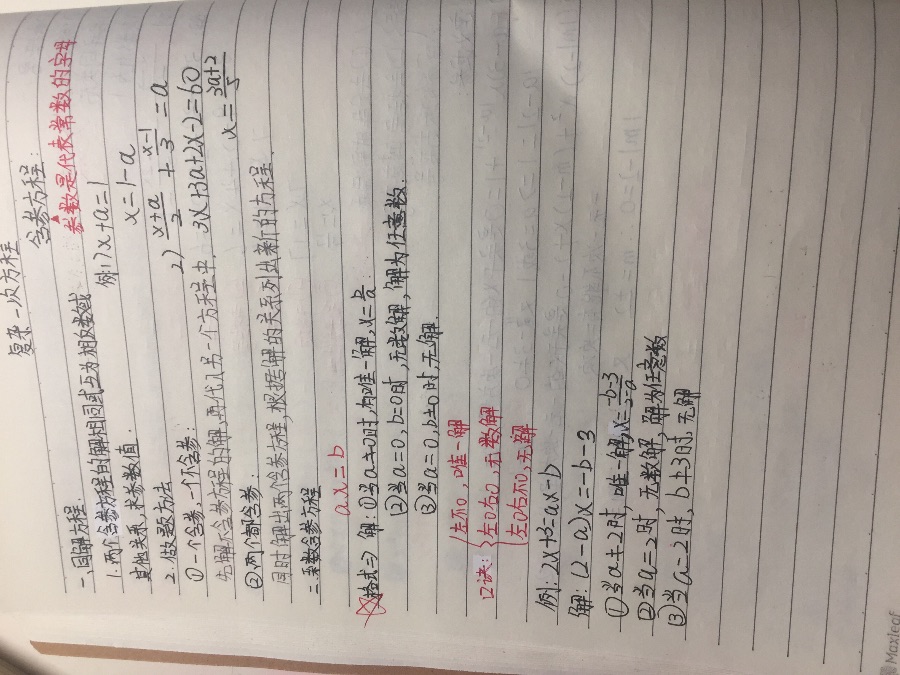 复杂一次方程
一、同解方程
1.两个含参方程的解相同或互为相反数或
其他关系,求参数值.
2.做题方法
①一个含参,一个不含参:
先解不含参方程的解,再代入另一个方程中.
②两个都含参:
同时解出两个含参方程,根据解的关系列出新的方程.
含参方程:
参数是代表常数的字母
例:1) x+a=1
x=1-a
2) (x+a)/2 + (x-1)/3 = a
3x+3a+2x-2=6a
x=(3a+2)/5
二.系数含参方程
ax=b
格式⇒解:①当a≠0时,有唯一解,x=b/a
②当a=0,b=0时,无数解,解为任意数.
③当a=0,b≠0时,无解.
口诀:
左不0,唯一解
左0右0,无数解
左0右不0,无解
例:2x+3=ax-b
解:(2-a)x=-b-3
①当a≠2时,唯一解,x=(-b-3)/(2-a)
②当a=2时,无数解,解为任意数
③当a=2时,b≠3时,无解
Maxleaf